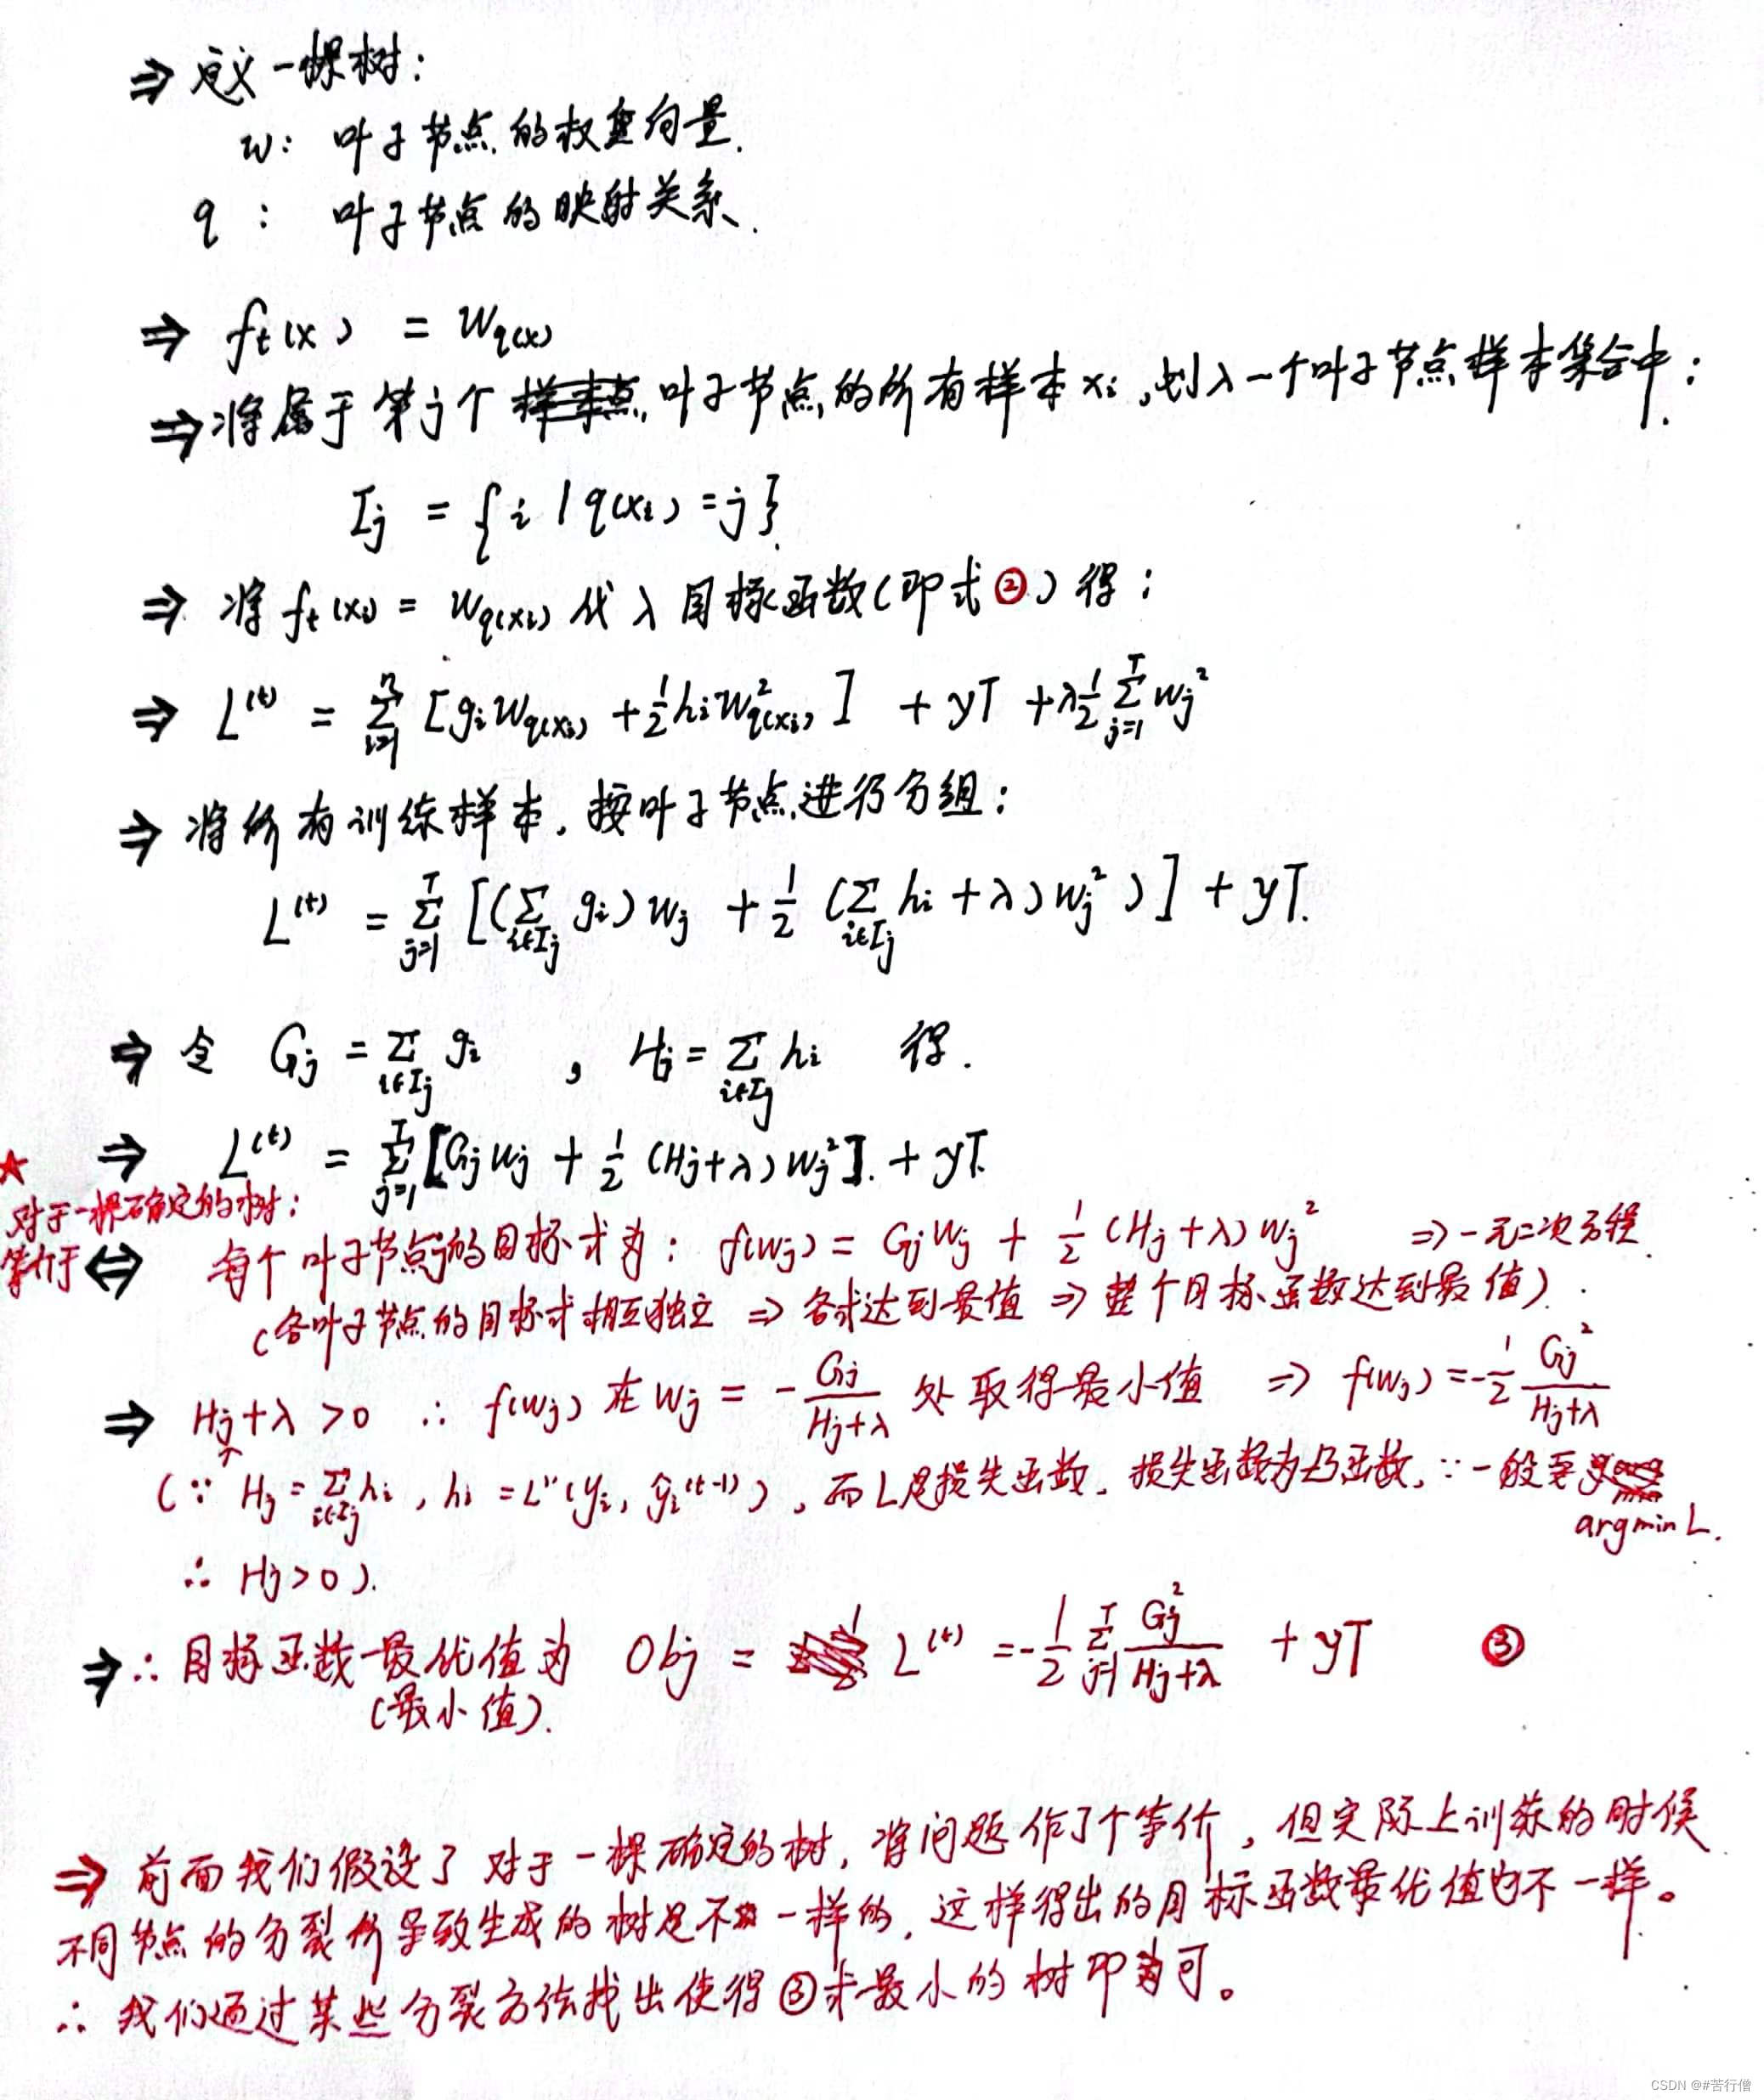 ⇒ 定义一棵树:
w: 叶子节点的权重向量.
q : 叶子节点的映射关系.
⇒ fₜ(x) = w_q(x)
⇒ 将属于第j个 叶子节点的所有样本 xᵢ,划入一个叶子节点样本集合中:
Iⱼ = {i | q(xᵢ) = j}.
⇒ 将 fₜ(xᵢ) = w_q(xᵢ) 代入目标函数(即式②)得:
⇒ L⁽ᵗ⁾ = Σ_{i=1}^{n} [gᵢ w_q(xᵢ) + ½ hᵢ w²_q(xᵢ)] + γT + λ ½ Σ_{j=1}^{T} wⱼ²
⇒ 将所有训练样本,按叶子节点进行分组:
L⁽ᵗ⁾ = Σ_{j=1}^{T} [(Σ_{i∈Iⱼ} gᵢ) wⱼ + ½ (Σ_{i∈Iⱼ} hᵢ + λ) wⱼ²)] + γT.
⇒ 令 Gⱼ = Σ_{i∈Iⱼ} gᵢ , Hⱼ = Σ_{i∈Iⱼ} hᵢ 得.
⇒ L⁽ᵗ⁾ = Σ_{j=1}^{T} [Gⱼwⱼ + ½ (Hⱼ+λ) wⱼ²]. + γT.
★
对于一棵确定的树:
等价于 ⇔ 每个叶子节点j的目标式为: f(wⱼ) = Gⱼwⱼ + ½ (Hⱼ+λ) wⱼ² ⇒ 一元二次方程.
(各叶子节点的目标式相互独立 ⇒ 各式达到最值 ⇒ 整个目标函数达到最值).
⇒ Hⱼ+λ > 0 ∴ f(wⱼ) 在 wⱼ = - Gⱼ/(Hⱼ+λ) 处取得最小值 ⇒ f(wⱼ) = -½ Gⱼ²/(Hⱼ+λ)
↑
(∵ Hⱼ = Σ_{i∈Iⱼ} hᵢ , hᵢ = L''(yᵢ, ŷᵢ⁽ᵗ⁻¹⁾) , 而L是损失函数, 损失函数为凸函数, ∵ 一般要求
argmin L.
∴ Hⱼ > 0).
⇒ ∴ 目标函数最优值为 Obj = L⁽ᵗ⁾ = -½ Σ_{j=1}^{T} Gⱼ²/(Hⱼ+λ) + γT ③
(最小值).
⇒ 前面我们假设了对于一棵确定的树, 将问题作了个等价, 但实际上训练的时候
不同节点的分裂所导致生成的树是不一样的, 这样得出的目标函数最优值也不一样。
∴ 我们通过某些分裂方法找出使得③式最小的树即可。
CSDN @#苦行僧